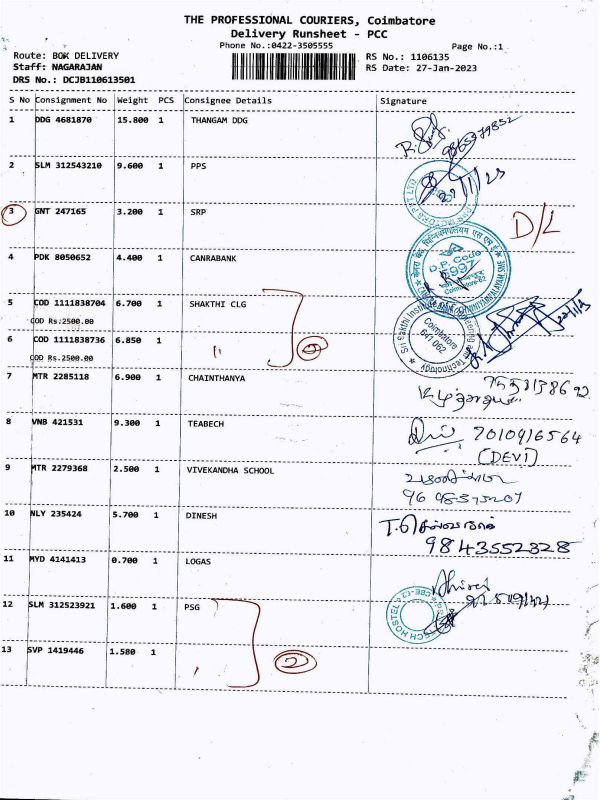 THE PROFESSIONAL COURIERS, Coimbatore
Delivery Runsheet - PCC
Phone No.:0422-3505555 Page No.:1
Route: BOK DELIVERY RS No.: 1106135
Staff: NAGARAJAN RS Date: 27-Jan-2023
DRS No.: DCJB110613501
S No Consignment No Weight PCS Consignee Details Signature
1 DDG 4681870 15.800 1 THANGAM DDG
2 SLM 312543210 9.600 1 PPS
3 GNT 247165 3.200 1 SRP D/L
4 PDK 8050652 4.400 1 CANRABANK
D.P. Code
5997
5 COD 1111838704 6.700 1 SHAKTHI CLG
COD Rs.2500.00
2
6 COD 1111838736 6.850 1
COD Rs.2500.00
Coimbatore
641 062
7 MTR 2285118 6.900 1 CHAINTHANYA
8 VNB 421531 9.300 1 TEABECH 7010916564
(DEVI)
9 MTR 2279368 2.500 1 VIVEKANDHA SCHOOL
10 NLY 235424 5.700 1 DINESH
9843552828
11 MYD 4141413 0.700 1 LOGAS
12 SLM 312523921 1.600 1 PSG
13 SVP 1419446 1.580 1 2